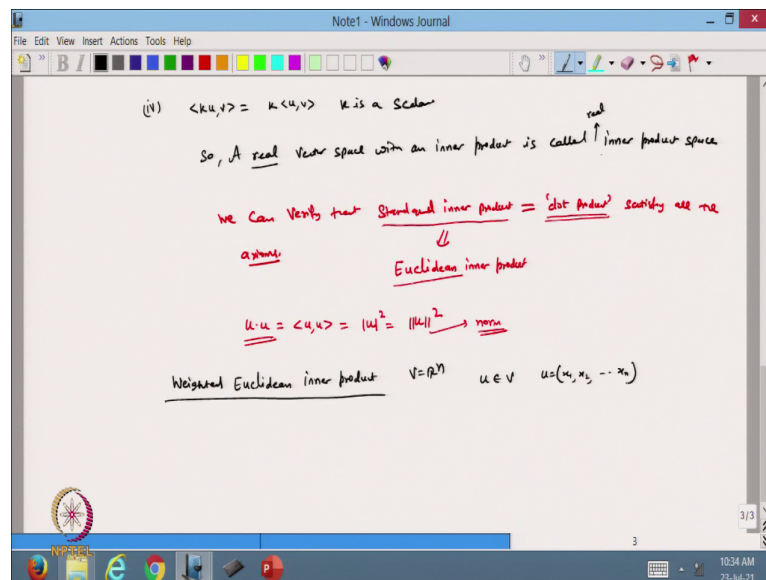 Note1 - Windows Journal
File Edit View Insert Actions Tools Help
(iv) <ku,v> = k<u,v> k is a scalar
real
So, A real vector space with an inner product is called ↑ inner product space
we can verify that Standard inner product = 'dot product' satisfy all the
axioms.
⇓
Euclidean inner product
u·u = <u,u> = |u|² = ||u||² → norm
Weighted Euclidean inner product V=R^n u ∈ V u=(x₁, x₂, -- xₙ)
3/3
NPTEL
3
10:34 AM
23-Jul-21